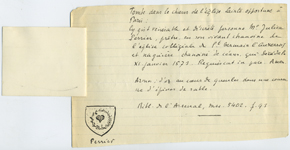 Tombe dans le chœur de l'église Sainte Opportune, à
Paris.
Cy gist vénérable et discrete personne Me Julien
Perrier, prêtre, en son vivant chanoine de
l'église collégiale de St Germain l'Auxerrois
et
chanoine de céans, qui décéda le
21 janvier 1573.
Arm. d'or, au cœur de gueules dans une couronne
d'épines de sable.
Bibl. de l'Arsenal, mss. f. 93
Perrier